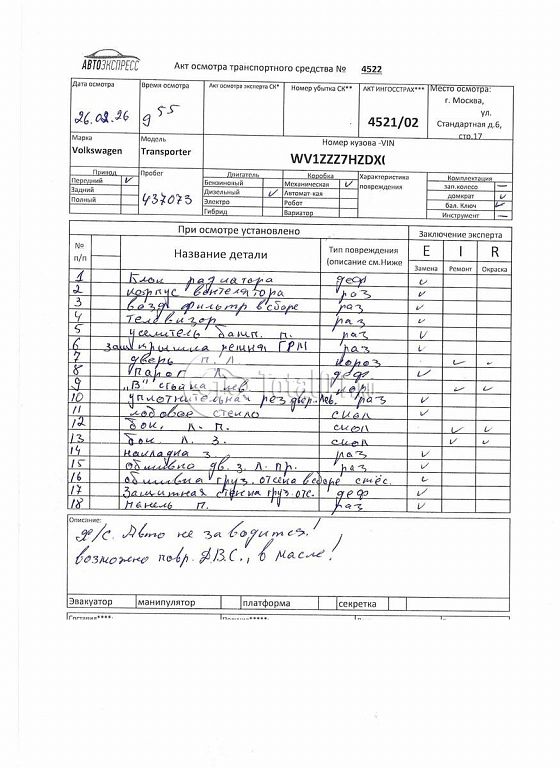 АВТОЭКСПРЕСС
Акт осмотра транспортного средства № 4522
Дата осмотра Время осмотра Акт осмотра эксперта СК* Номер убытка СК** АКТ ИНГОССТРАХ*** Место осмотра:
26.02.26 9 55 4521/02 г. Москва,
ул.
Стандартная д.6,
стр.17
Марка Модель Номер кузова -VIN
Volkswagen Transporter WV1ZZZ7HZDX(
Привод Пробег Двигатель Коробка Характеристика повреждения Комплектация
Передний ✓ 437073 Бензиновый Механическая ✓ зап.колесо —
Задний Дизельный ✓ Автомат-кая домкрат ✓
Полный Электро Робот бал. Ключ ✓
Гибрид Вариатор Инструмент —
При осмотре установлено Заключение эксперта
№ п/п Название детали Тип повреждения (описание см.Ниже E I R
Замена Ремонт Окраска
1 Блок радиатора деф ✓
2 корпус вентелятора раз ✓
3 возд. фильтр в сборе раз ✓
4 телевизор раз ✓
5 уселитель бамп. п. раз ✓
6 защ крышка ремня ГРМ раз ✓
7 дверь п. л. короз ✓ ✓
8 Парог л. деф ✓
9 "В" стойка лев. кор ✓ ✓
10 уплотнительная рез двер. лев. раз ✓
11 лобовое стекло скол ✓
12 бок. л. п. скол ✓ ✓
13 бок л. з. скол ✓ ✓
14 накладка з. раз ✓
15 обшивка дв. з. л. пр. раз ✓
16 обшивка груз. отсека в сборе ✓
17 Защитная стенка груз. отс. деф ✓
18 панель п. раз ✓
Описание:
Авто не заводится!
возможно повр. Д.В.С., в масле!
Эвакуатор манипулятор платформа секретка